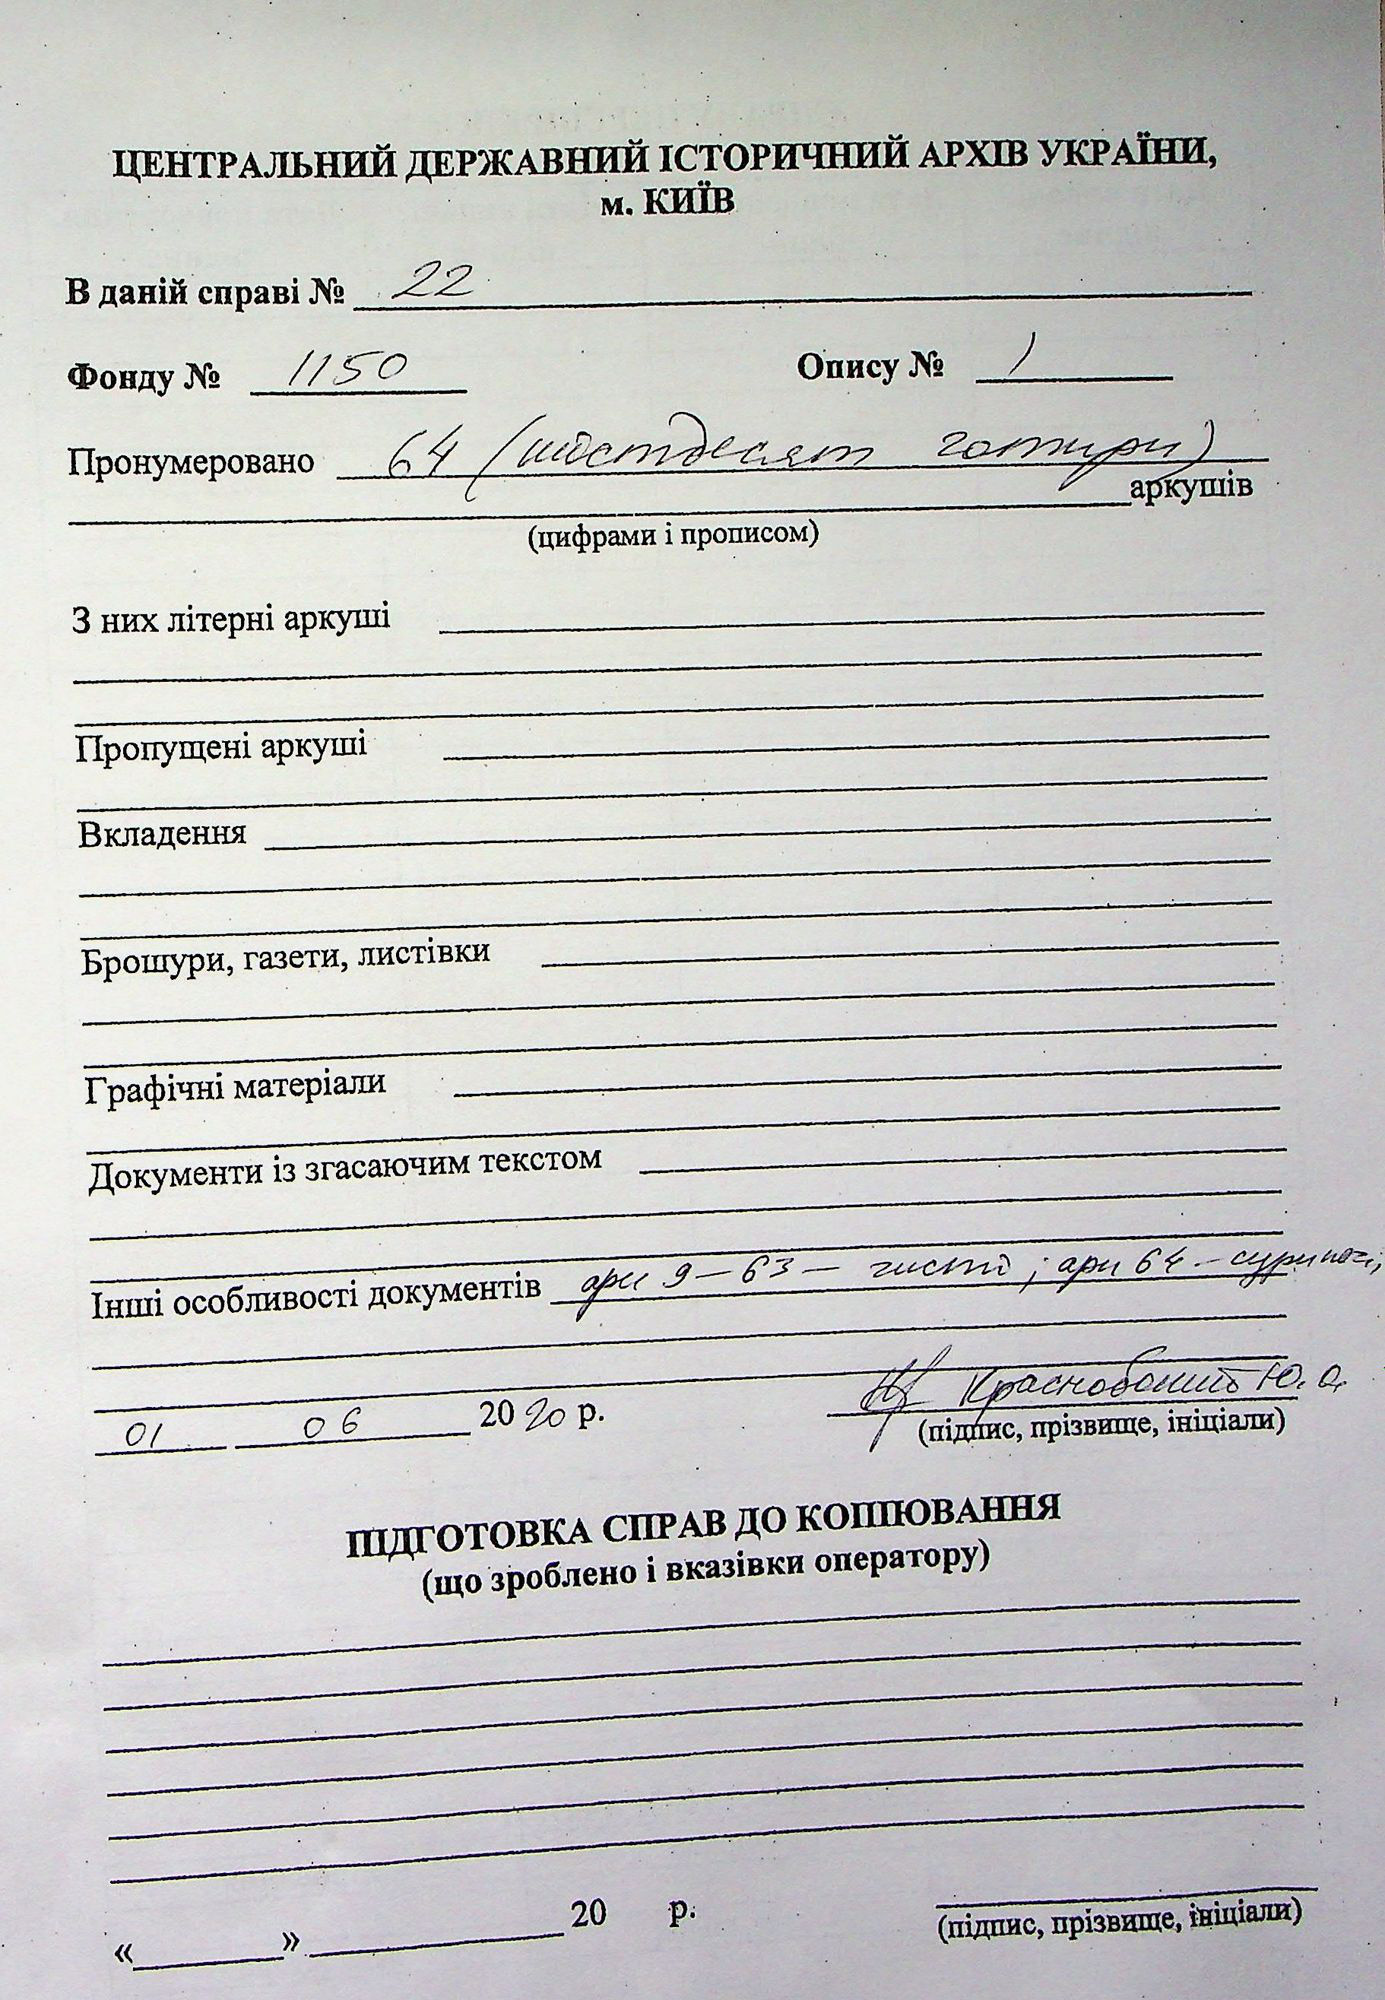 ЦЕНТРАЛЬНИЙ ДЕРЖАВНИЙ ІСТОРИЧНИЙ АРХІВ УКРАЇНИ,
м. КИЇВ
В даній справі № 22
Фонду № 1150 Опису № 1
Пронумеровано 64 (шістдесят чотири)
аркушів
(цифрами і прописом)
З них літерні аркуші
Пропущені аркуші
Вкладення
Брошури, газети, листівки
Графічні матеріали
Документи із згасаючим текстом
Інші особливості документів арк 9–63 – чисті; арк 64 –
01 06 2020 р.
Ю. О.
(підпис, прізвище, ініціали)
ПІДГОТОВКА СПРАВ ДО КОПІЮВАННЯ
(що зроблено і вказівки оператору)
« » 20 р.
(підпис, прізвище, ініціали)